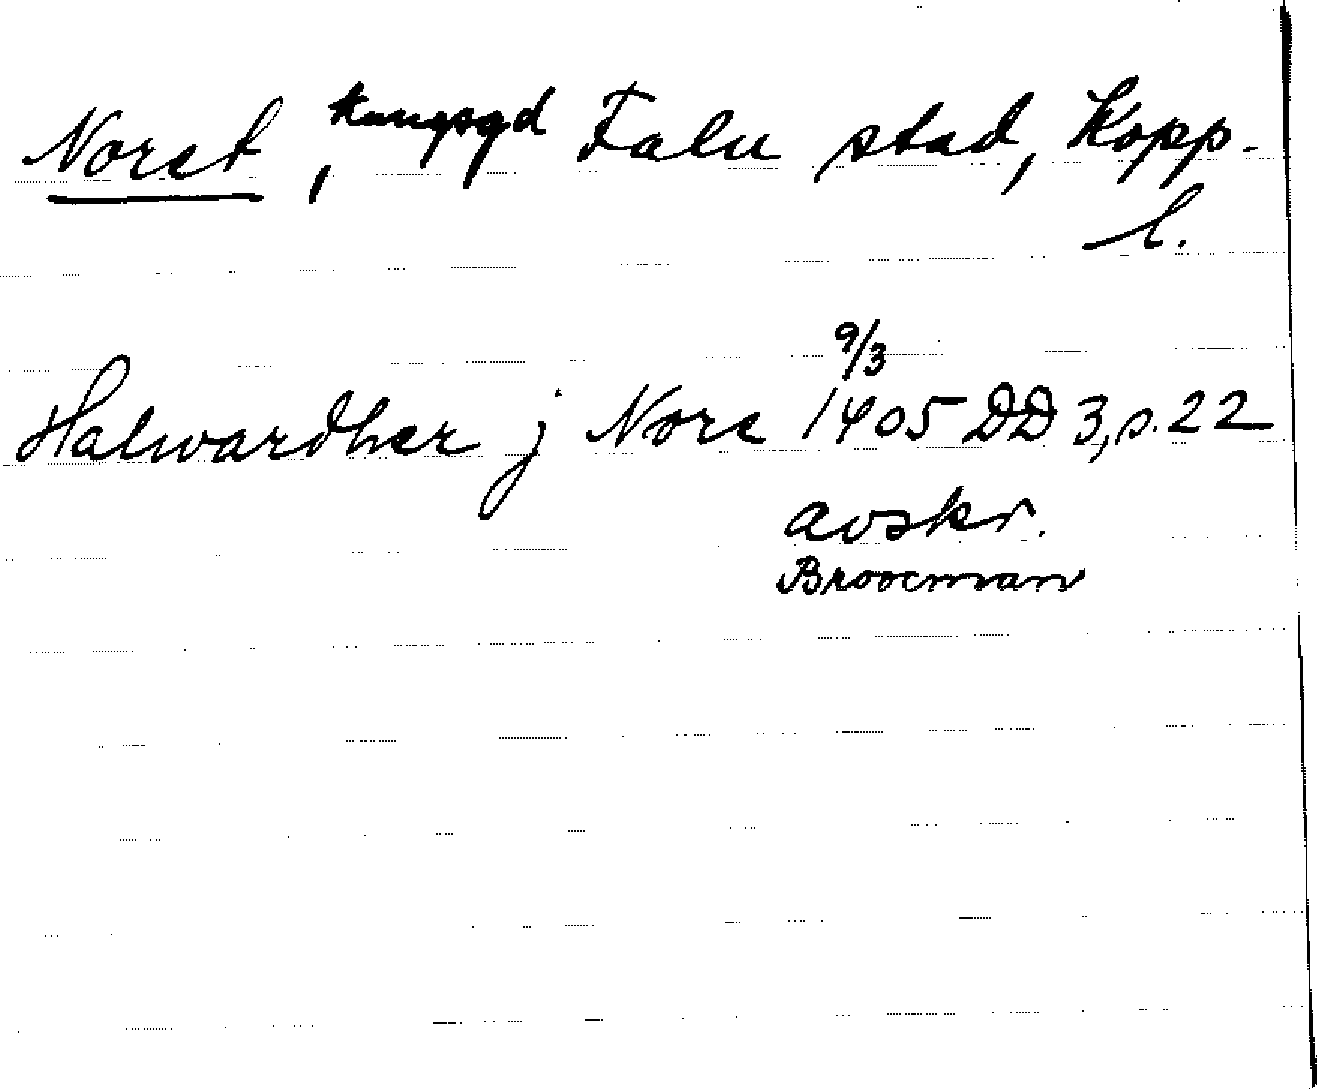 Noret, kungsgd Falu stad, Kopp.
l.
9/3
Halwardher j Nore 1405 DD 3, s. 22
avskr.
Broocman